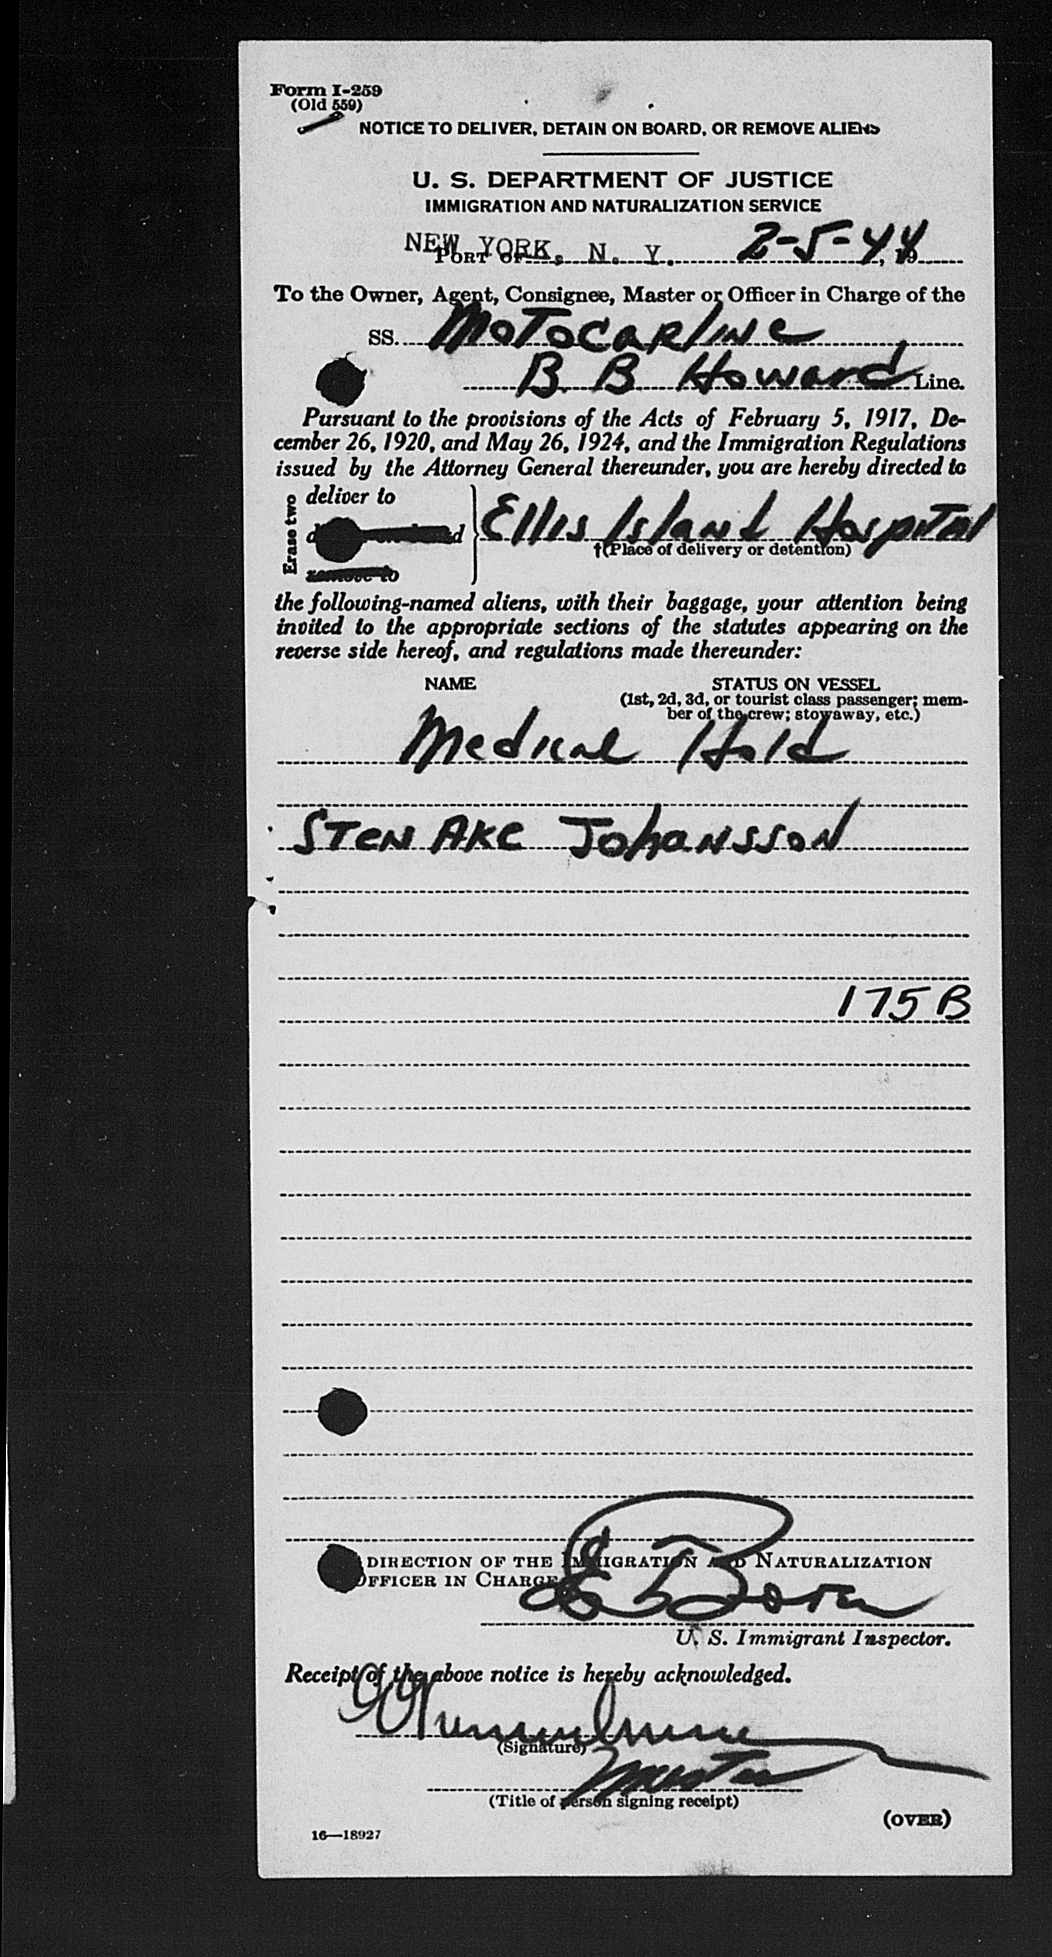 Form I-259
(Old 559)
NOTICE TO DELIVER, DETAIN ON BOARD, OR REMOVE ALIENS
U. S. DEPARTMENT OF JUSTICE
IMMIGRATION AND NATURALIZATION SERVICE
NEW YORK, N. Y. 2-5-44
PORT OF , 19
To the Owner, Agent, Consignee, Master or Officer in Charge of the
SS. MOTOCARLINE
B B Howard Line.
Pursuant to the provisions of the Acts of February 5, 1917, De-
cember 26, 1920, and May 26, 1924, and the Immigration Regulations
issued by the Attorney General thereunder, you are hereby directed to
Erase two
deliver to
Ellis Island Hospital
remove to
†(Place of delivery or detention)
the following-named aliens, with their baggage, your attention being
invited to the appropriate sections of the statutes appearing on the
reverse side hereof, and regulations made thereunder:
NAME STATUS ON VESSEL
(1st, 2d, 3d, or tourist class passenger; mem-
ber of the crew; stowaway, etc.)
Medical Hold
STEN AKE Johansson
175 B
DIRECTION OF THE IMMIGRATION AND NATURALIZATION
OFFICER IN CHARGE
U. S. Immigrant Inspector.
Receipt of the above notice is hereby acknowledged.
(Signature)
Master
(Title of person signing receipt)
(OVER)
16—18927